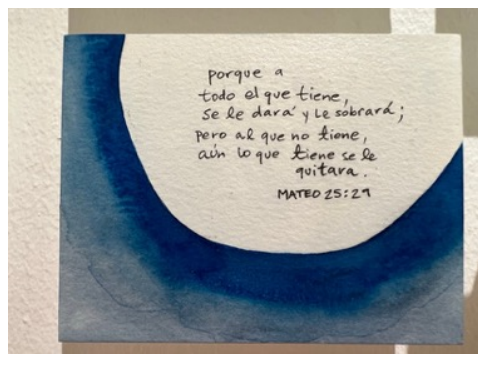 porque a
todo el que tiene,
se le dará y le sobrará;
pero al que no tiene,
aún lo que tiene se le
quitara.
MATEO 25:29